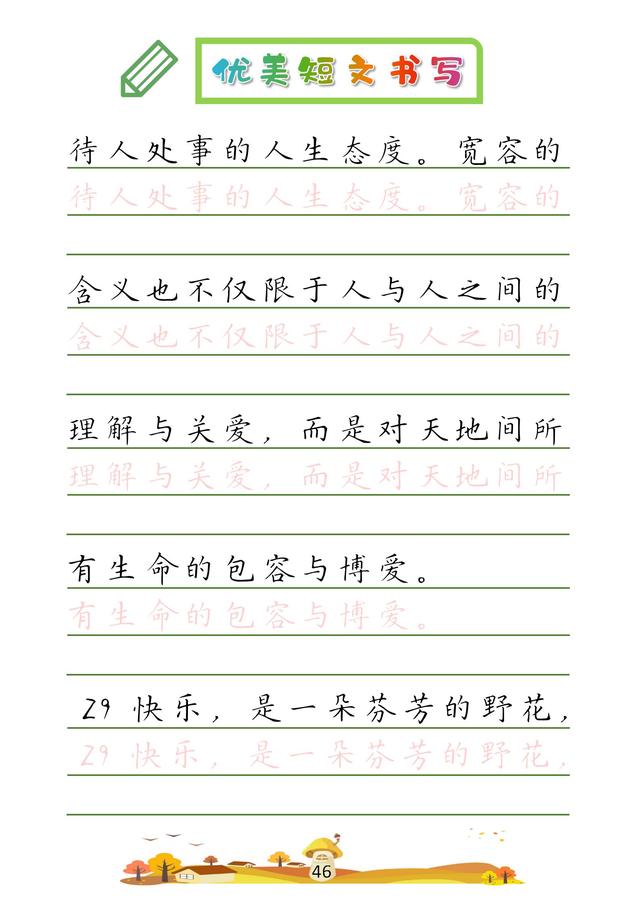 优美短文书写
待人处事的人生态度。宽容的
待人处事的人生态度。宽容的
含义也不仅限于人与人之间的
含义也不仅限于人与人之间的
理解与关爱，而是对天地间所
理解与关爱，而是对天地间所
有生命的包容与博爱。
有生命的包容与博爱。
29 快乐，是一朵芬芳的野花，
29 快乐，是一朵芬芳的野花，
46